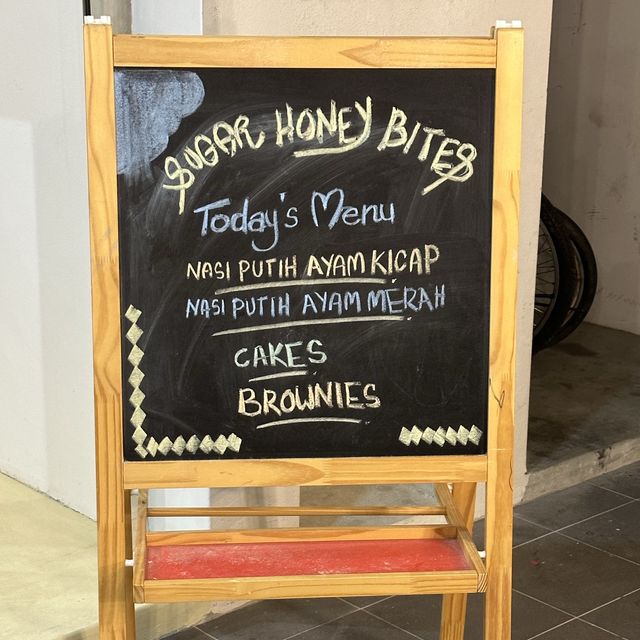 SUGAR HONEY BITES
Today's Menu
NASI PUTIH AYAM KICAP
NASI PUTIH AYAM MERAH
CAKES
BROWNIES